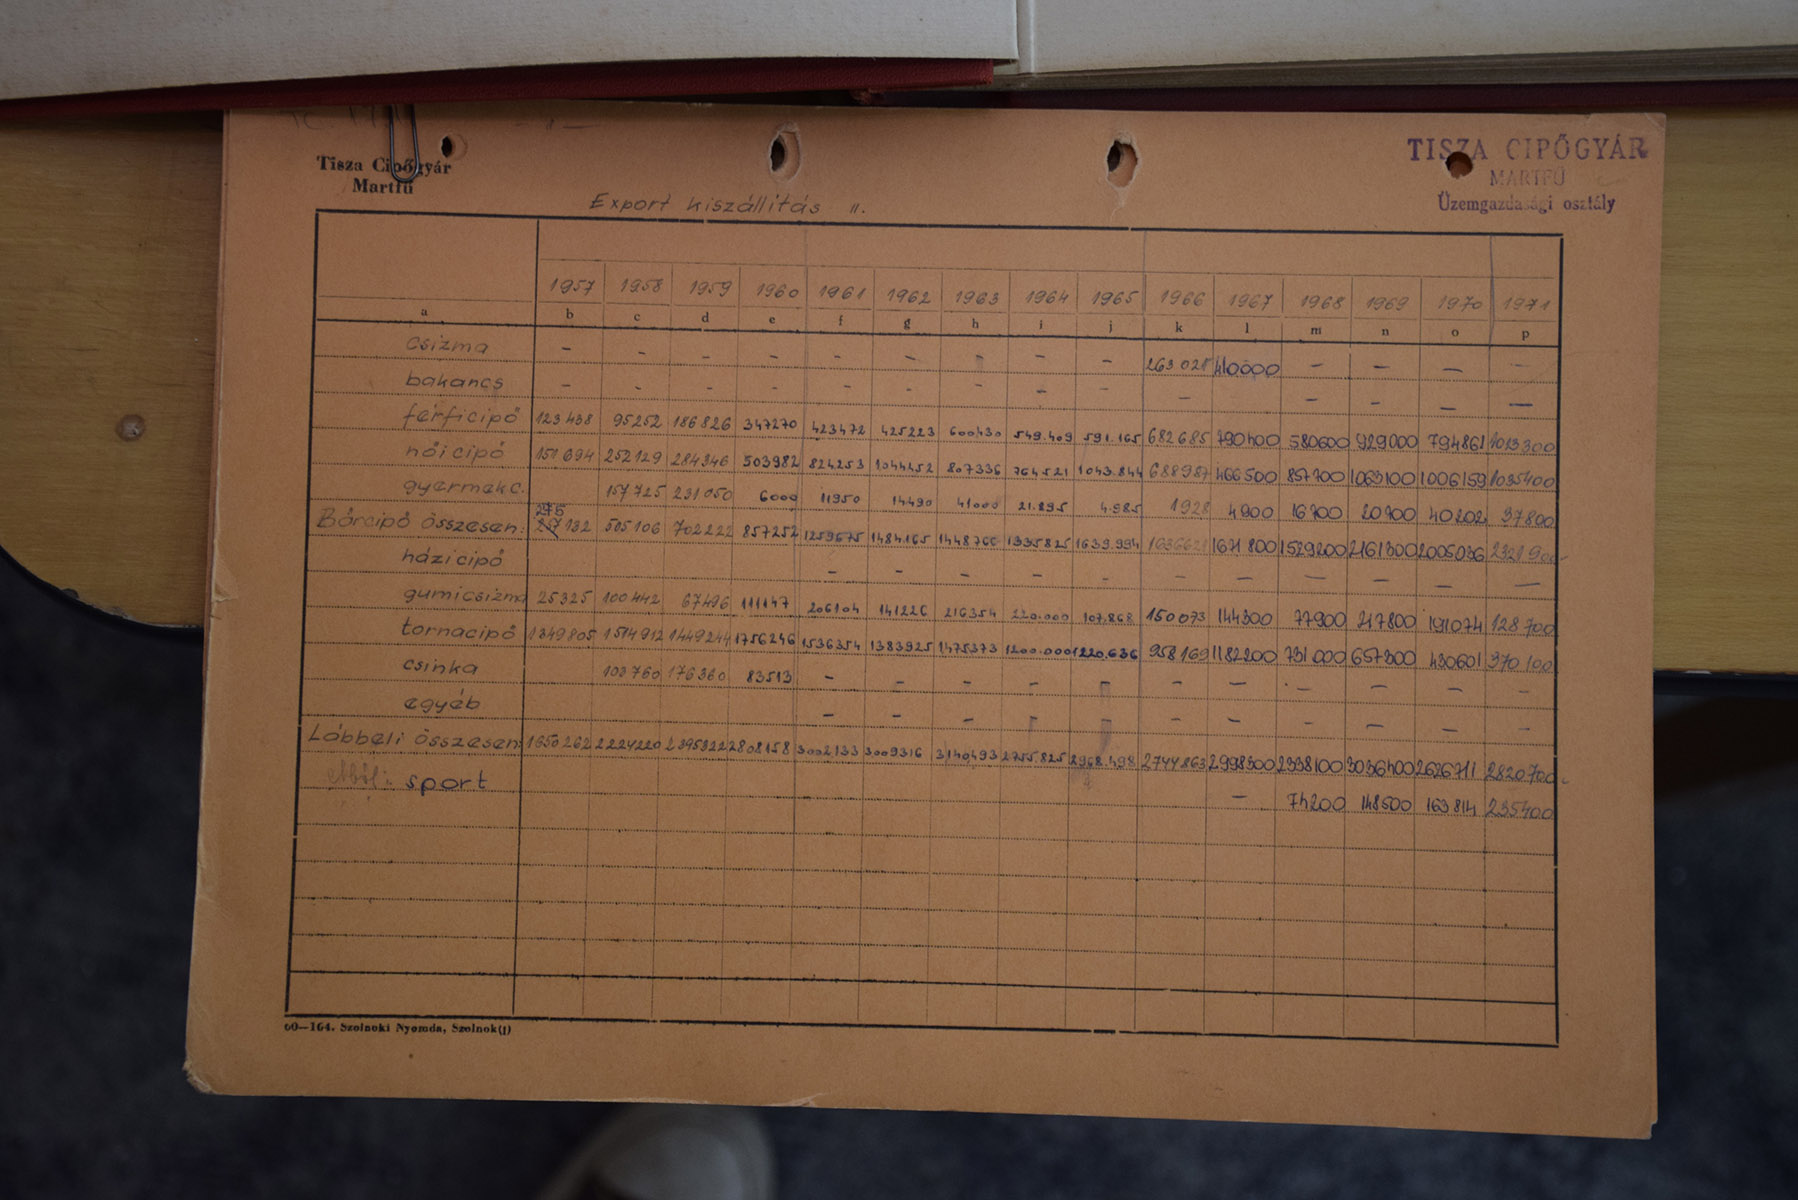 Tisza Cipőgyár
Martfű
TISZA CIPŐGYÁR
MARTFŰ
Üzemgazdasági osztály
Export kiszállítás II.
1957 1958 1959 1960 1961 1962 1963 1964 1965 1966 1967 1968 1969 1970 1971
a b c d e f g h i j k l m n o p
csizma - - - - - - - - - 263 021 410000 - - - -
bakancs - - - - - - - - - - - - - -
férficipő 123 438 95252 186 826 347270 423472 425223 600430 549.409 591.165 682 685 790400 580600 929000 794861 1013300
női cipő 151 694 252129 284346 503982 824253 1044452 807336 764521 1043.844 688987 466500 857700 1063100 1006159 1035400
gyermekc. 157725 231050 6000 11950 14490 41000 21.895 4.985 1928 4900 16700 20700 40202 37800
Bőrcipő összesen: 275 132 505106 702222 857252 1259675 1484165 1448766 1335825 1639.994 1671800 1529200 2161300 2005036 2321900
házicipő - - - - - - - - - - -
gumicsizma 25325 100442 67496 111147 206104 141226 216354 220.000 107.868 150073 144300 77900 217800 191074 128700
tornacipő 1349805 1514912 1449244 1756246 1536354 1383925 1475373 1200.000 1220.636 958169 1182200 731000 657300 430601 370100
csinka 103760 176360 83513 - - - - - - - - - - -
egyéb - - - - - - - - - - -
Lábbeli összesen: 1650262 2224220 2395322 2808158 3002133 3009316 3140493 2755.825 2968.498 2744863 2998300 2338100 3036400 2626711 2820700
ebből: sport - 74200 148500 163814 235400
60—164. Szolnoki Nyomda, Szolnok(j)